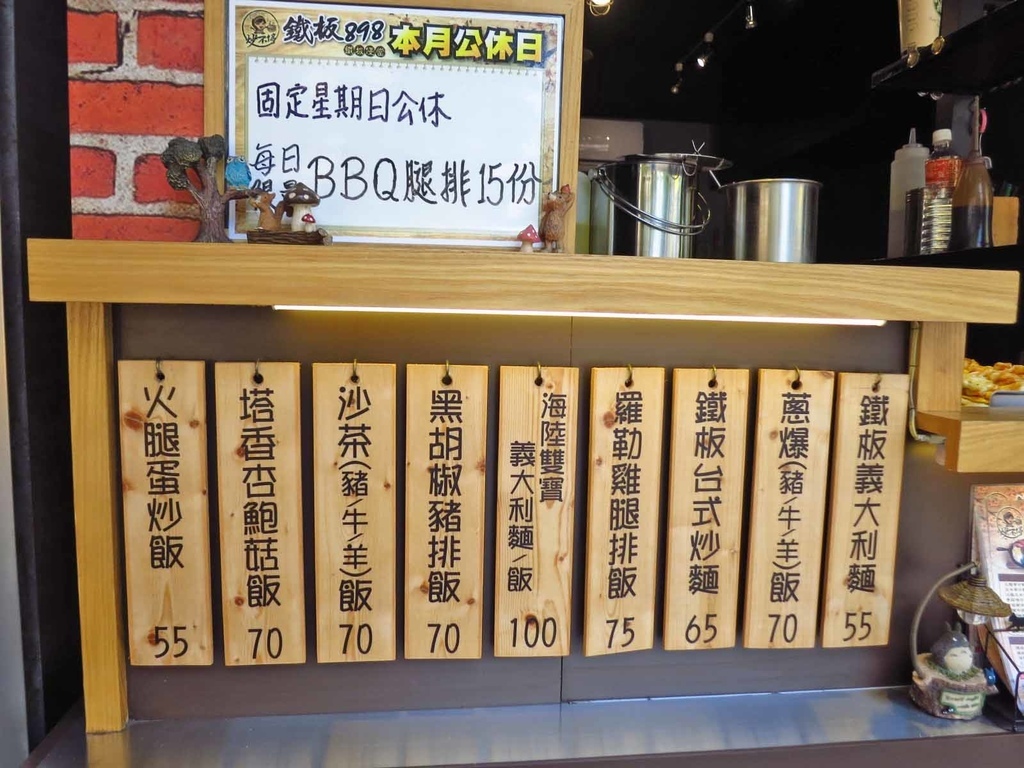 鐵板898
本月公休日
固定星期日公休
每日
限量
BBQ腿排15份
火腿蛋炒飯 55
塔香杏鮑菇飯 70
沙茶(豬/牛/羊)飯 70
黑胡椒豬排飯 70
海陸雙寶
義大利麵/飯 100
羅勒雞腿排飯 75
鐵板台式炒麵 65
蔥爆(豬/牛/羊)飯 70
鐵板義大利麵 55